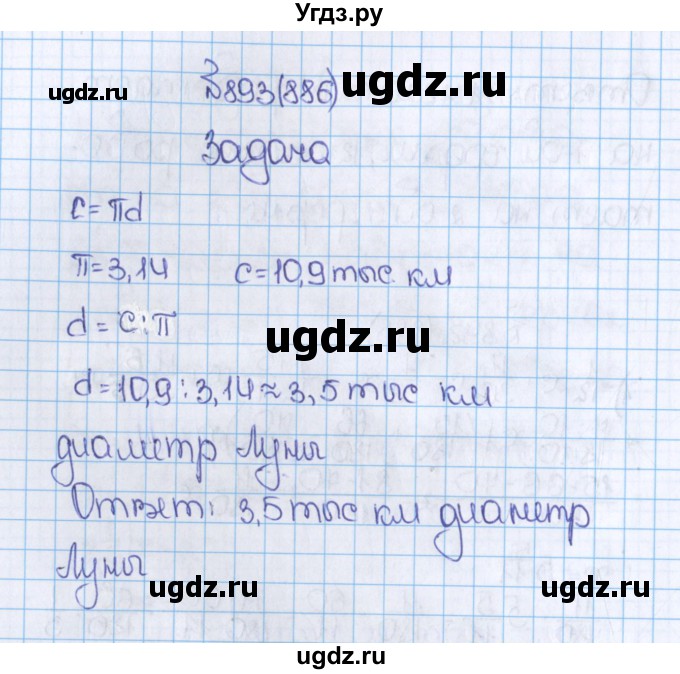 Угдз.ру
№893(886) ugdz.ru
ugdz.ru
Задача
c=πd
π=3,14 c=10,9 тыс. км
d=c:π
ugdz.ru
d=10,9:3,14≈3,5 тыс км
диаметр Луны
Ответ: 3,5 тыс км диаметр
Луны
ugdz.ru ugdz.ru
ugdz.ru